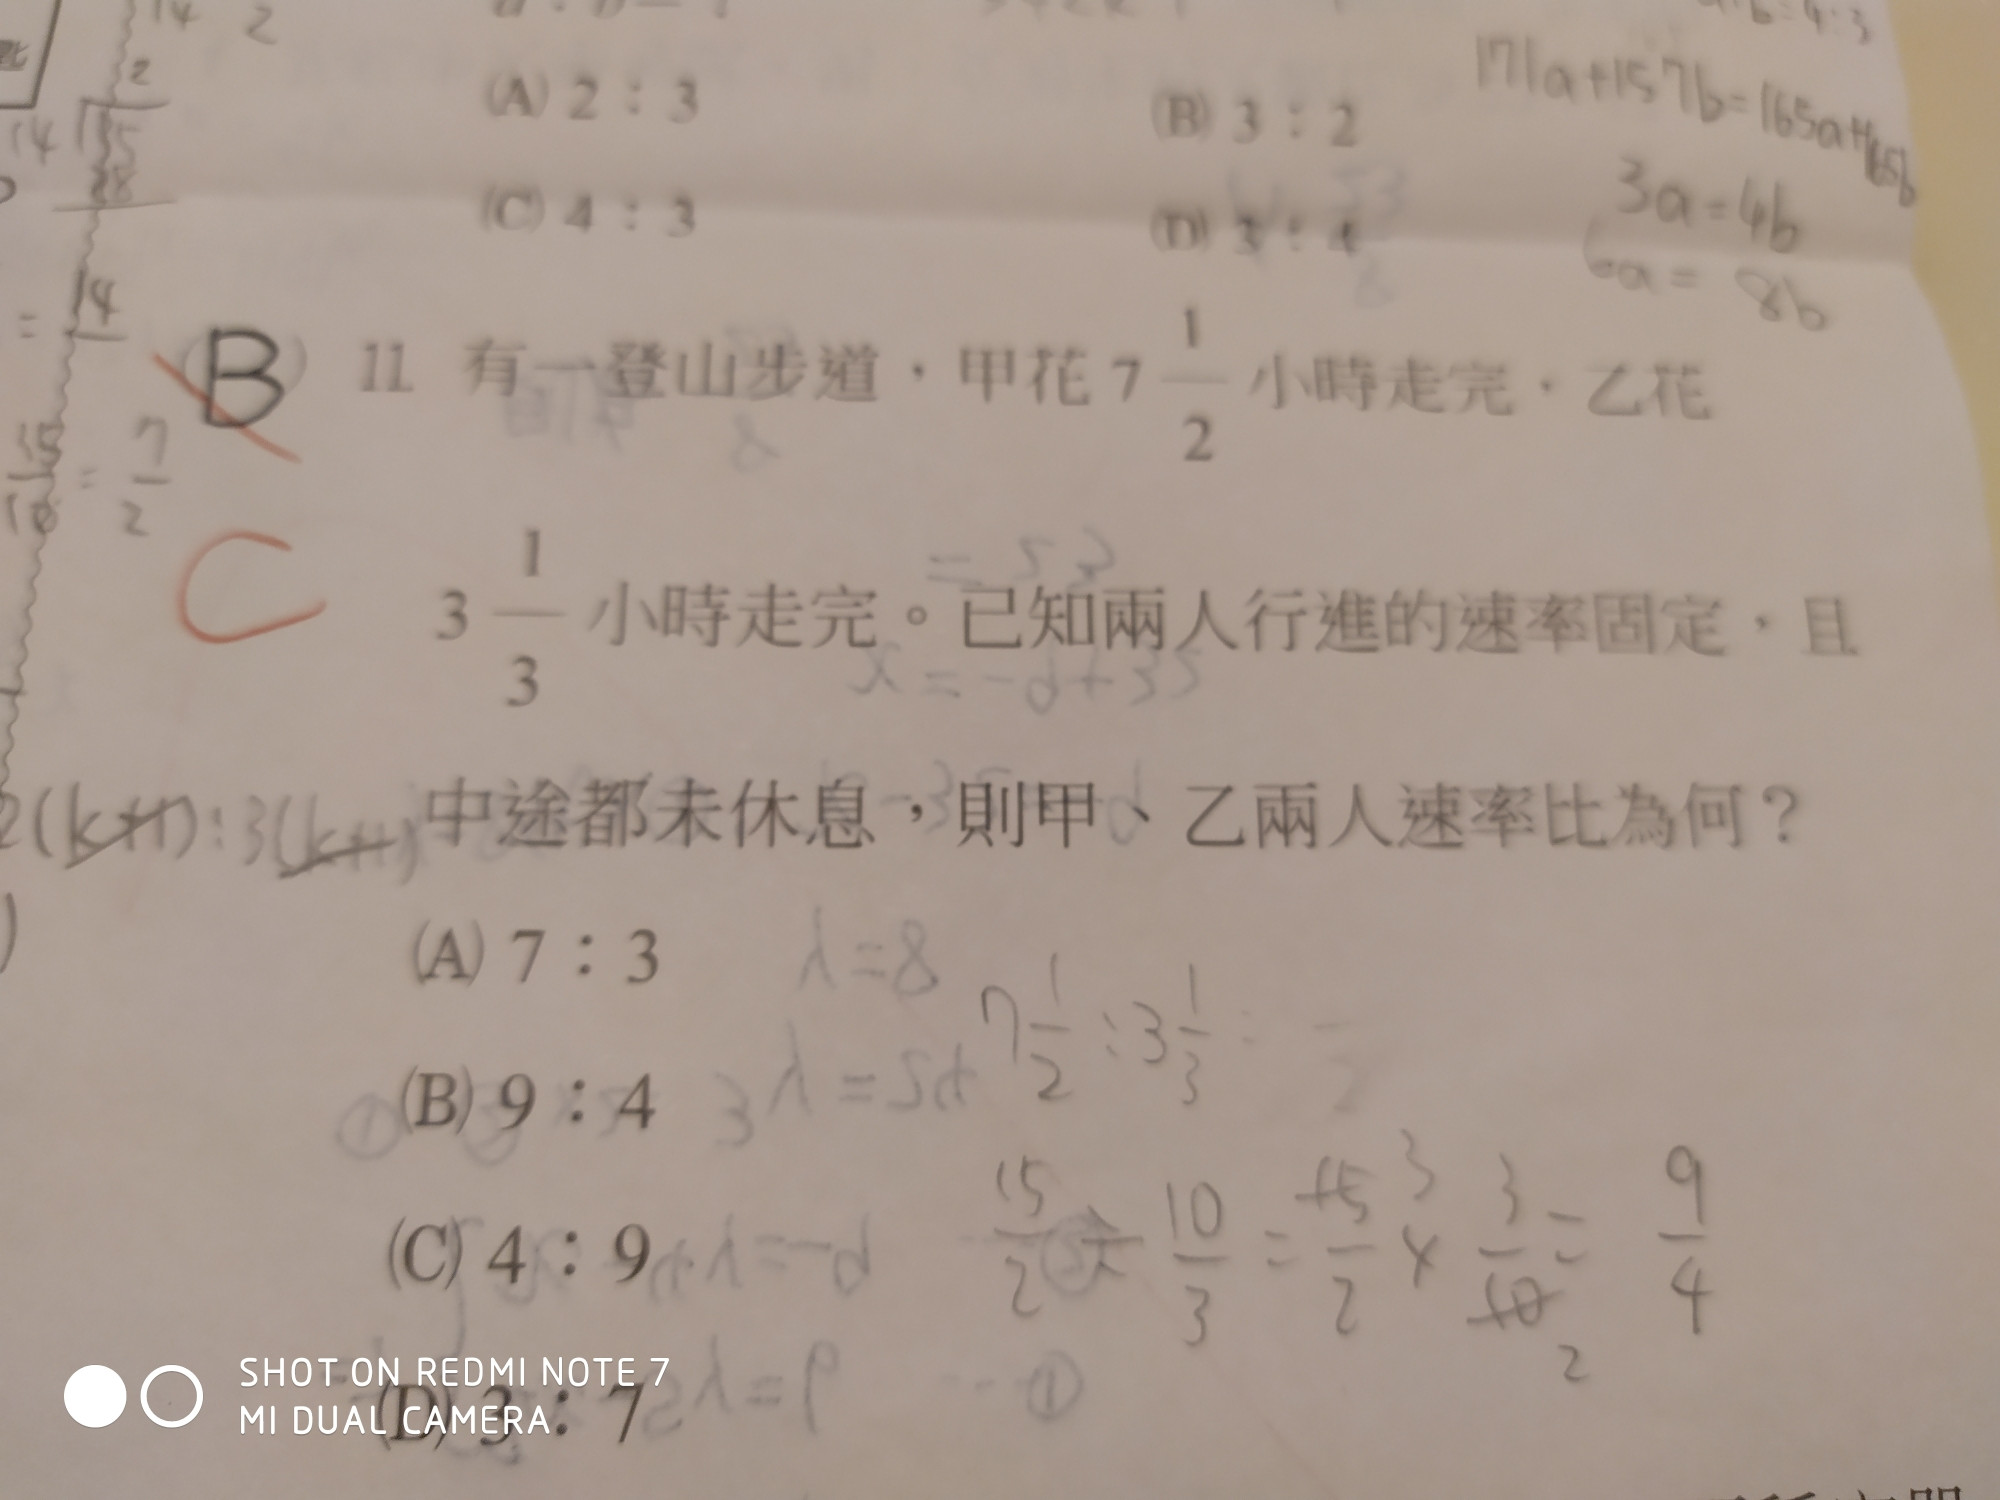 14 2
(A) 2：3
(B) 3：2
171a+157b=165a+165b
2
14 35
28
(C) 4：3
(D) 3：4
3a=4b
6a = 8b
= 14
B 11 有一登山步道，甲花 7 1/2 小時走完，乙花
= 7/2
C
3 1/3 小時走完。已知兩人行進的速率固定，且
2(k+1):3(k+1) 中途都未休息，則甲、乙兩人速率比為何？
(A) 7：3
7 1/2 : 3 1/3 =
(B) 9：4
(C) 4：9
15/2 ÷ 10/3 = 15/2 3 × 3/10 2 = 9/4
(D) 3：7
SHOT ON REDMI NOTE 7
MI DUAL CAMERA